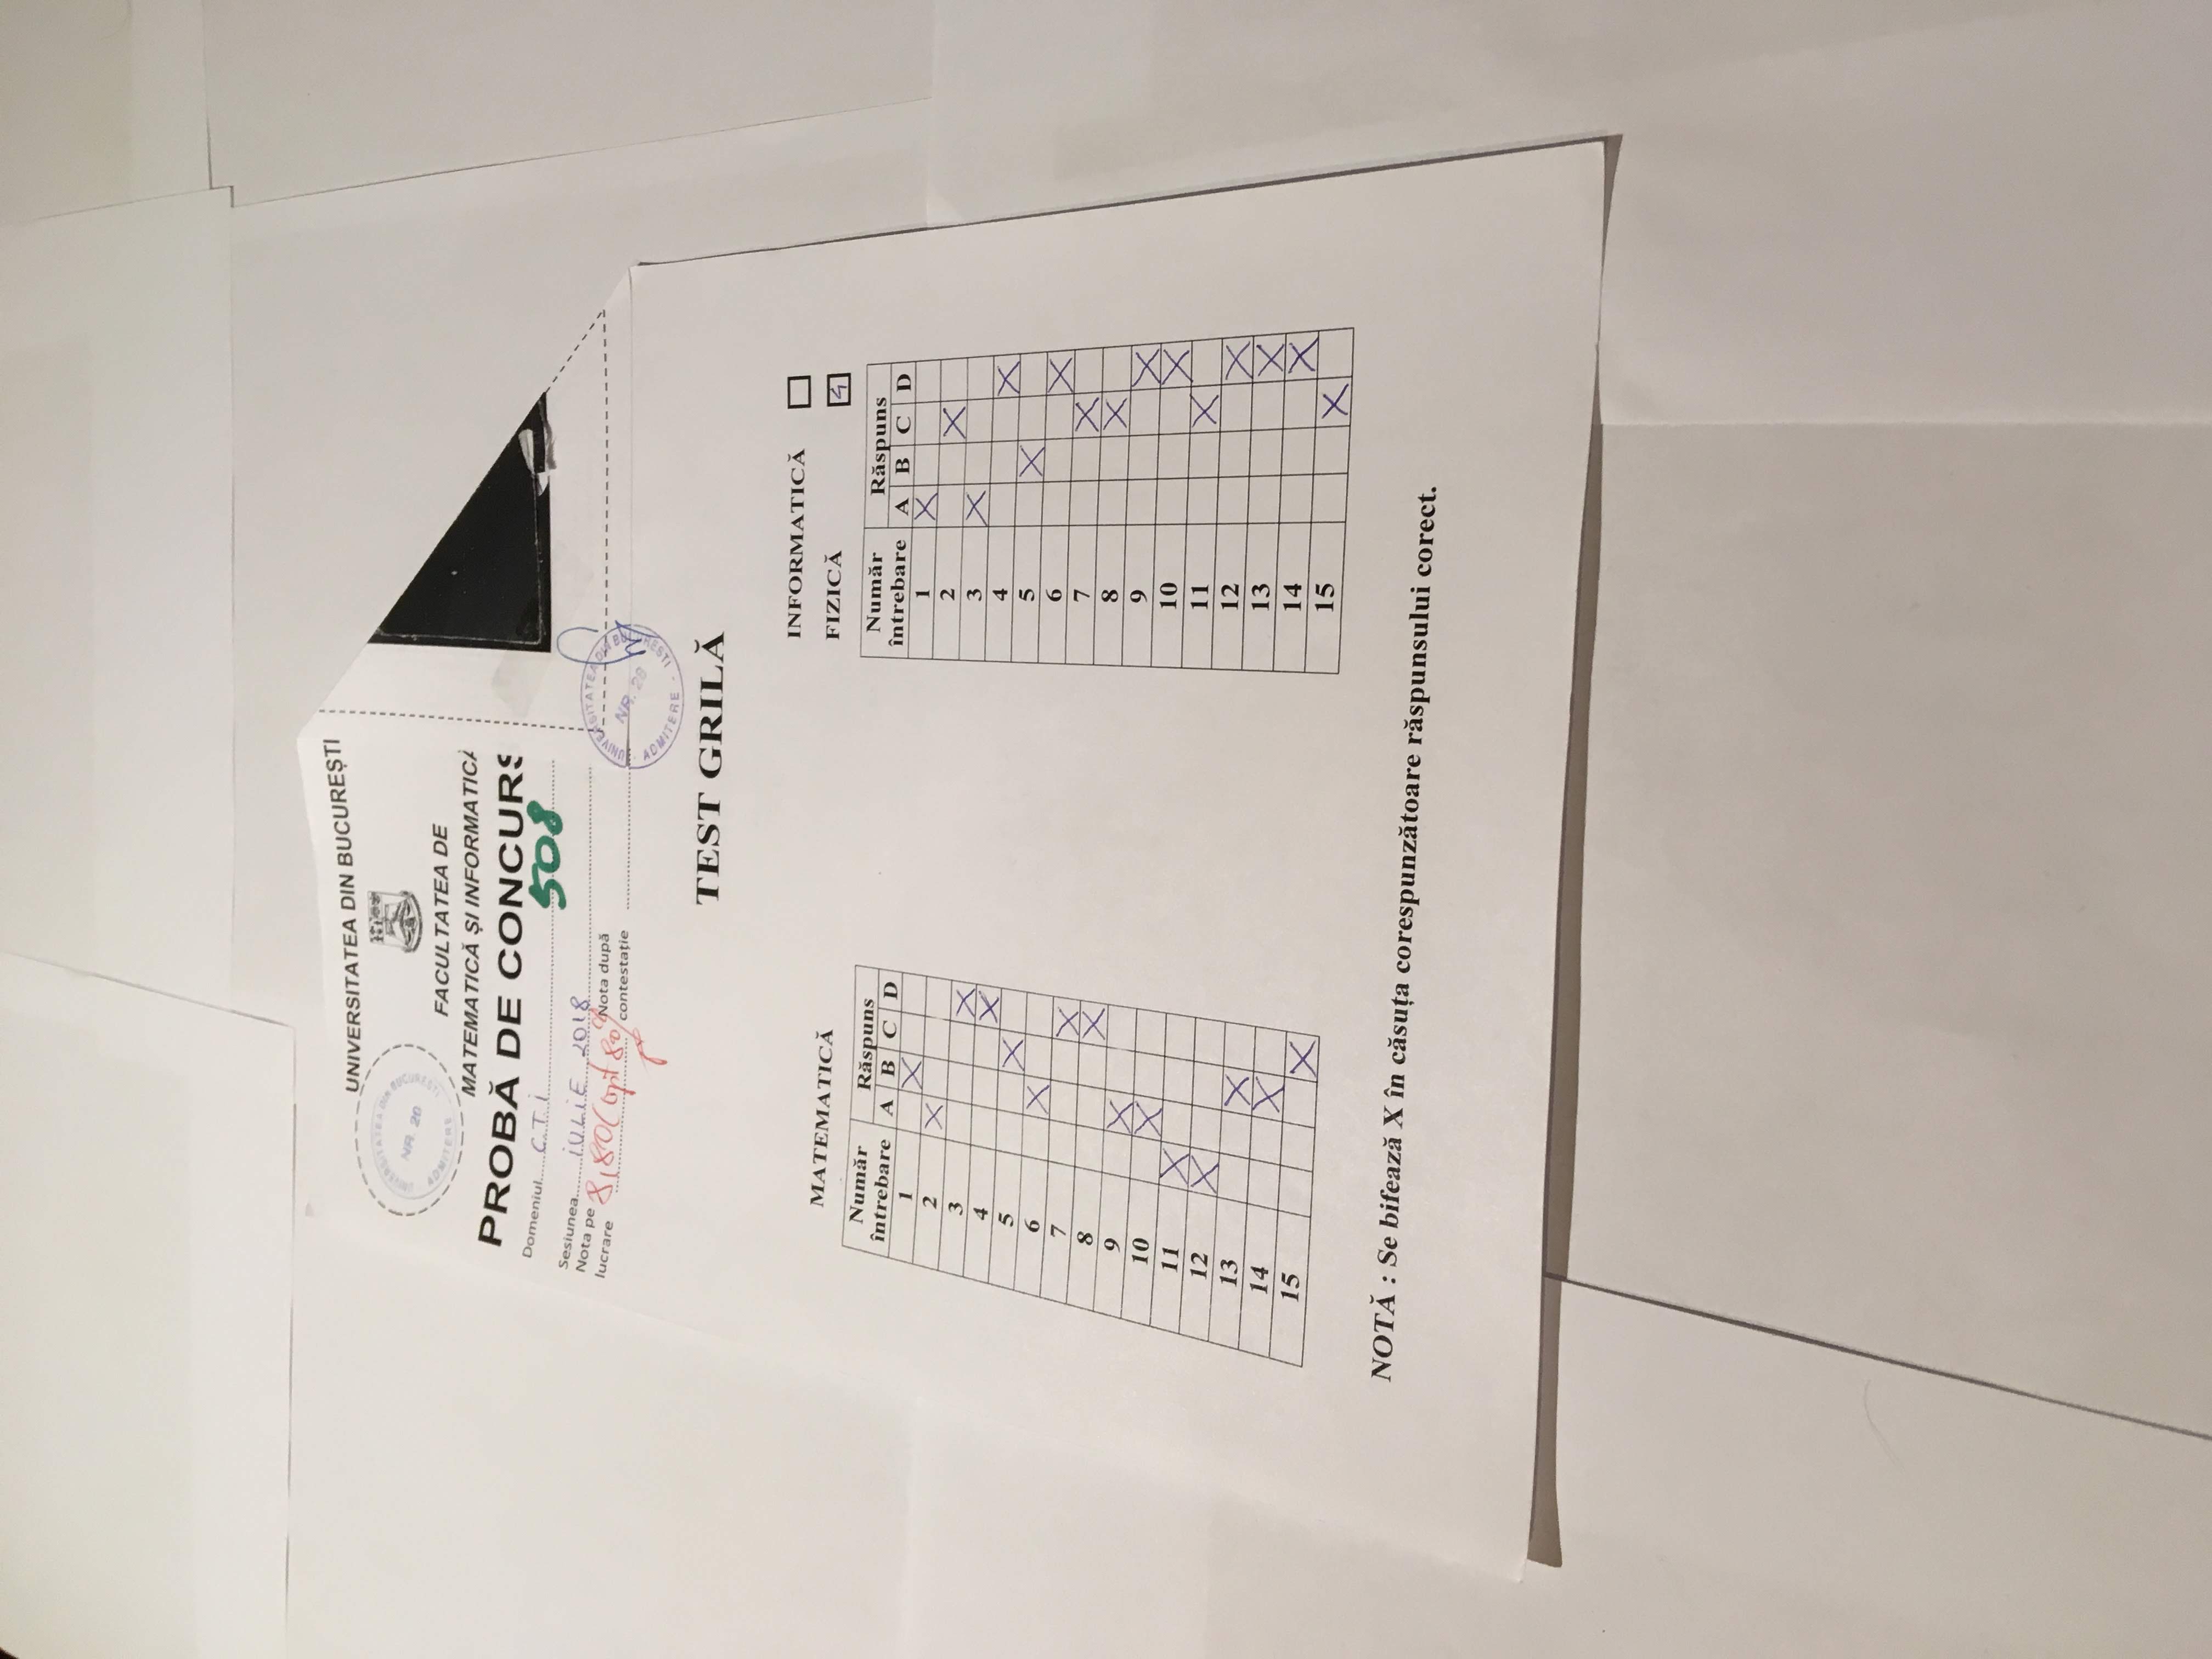 UNIVERSITATEA DIN BUCUREȘTI
UNIVERSITATEA DIN BUCUREȘTI
NR. 20
ADMITERE
FACULTATEA DE
MATEMATICĂ ȘI INFORMATICĂ
PROBĂ DE CONCURS
Domeniul C.T.I 508
Sesiunea IULIE 2018
Nota pe lucrare 8,80 (opt 80%) Nota după contestație
UNIVERSITATEA DIN BUCUREȘTI
NR. 20
ADMITERE
TEST GRILĂ
MATEMATICĂ
Număr întrebare Răspuns
A B C D
1 X
2 X
3 X
4 X
5 X
6 X
7 X
8 X
9 X
10 X
11 X
12 X
13 X
14 X
15 X
INFORMATICĂ
FIZICĂ 4
Număr întrebare Răspuns
A B C D
1 X
2 X
3 X
4 X
5 X
6 X
7 X
8 X
9 X
10 X
11 X
12 X
13 X
14 X
15 X
NOTĂ : Se bifează X în căsuța corespunzătoare răspunsului corect.